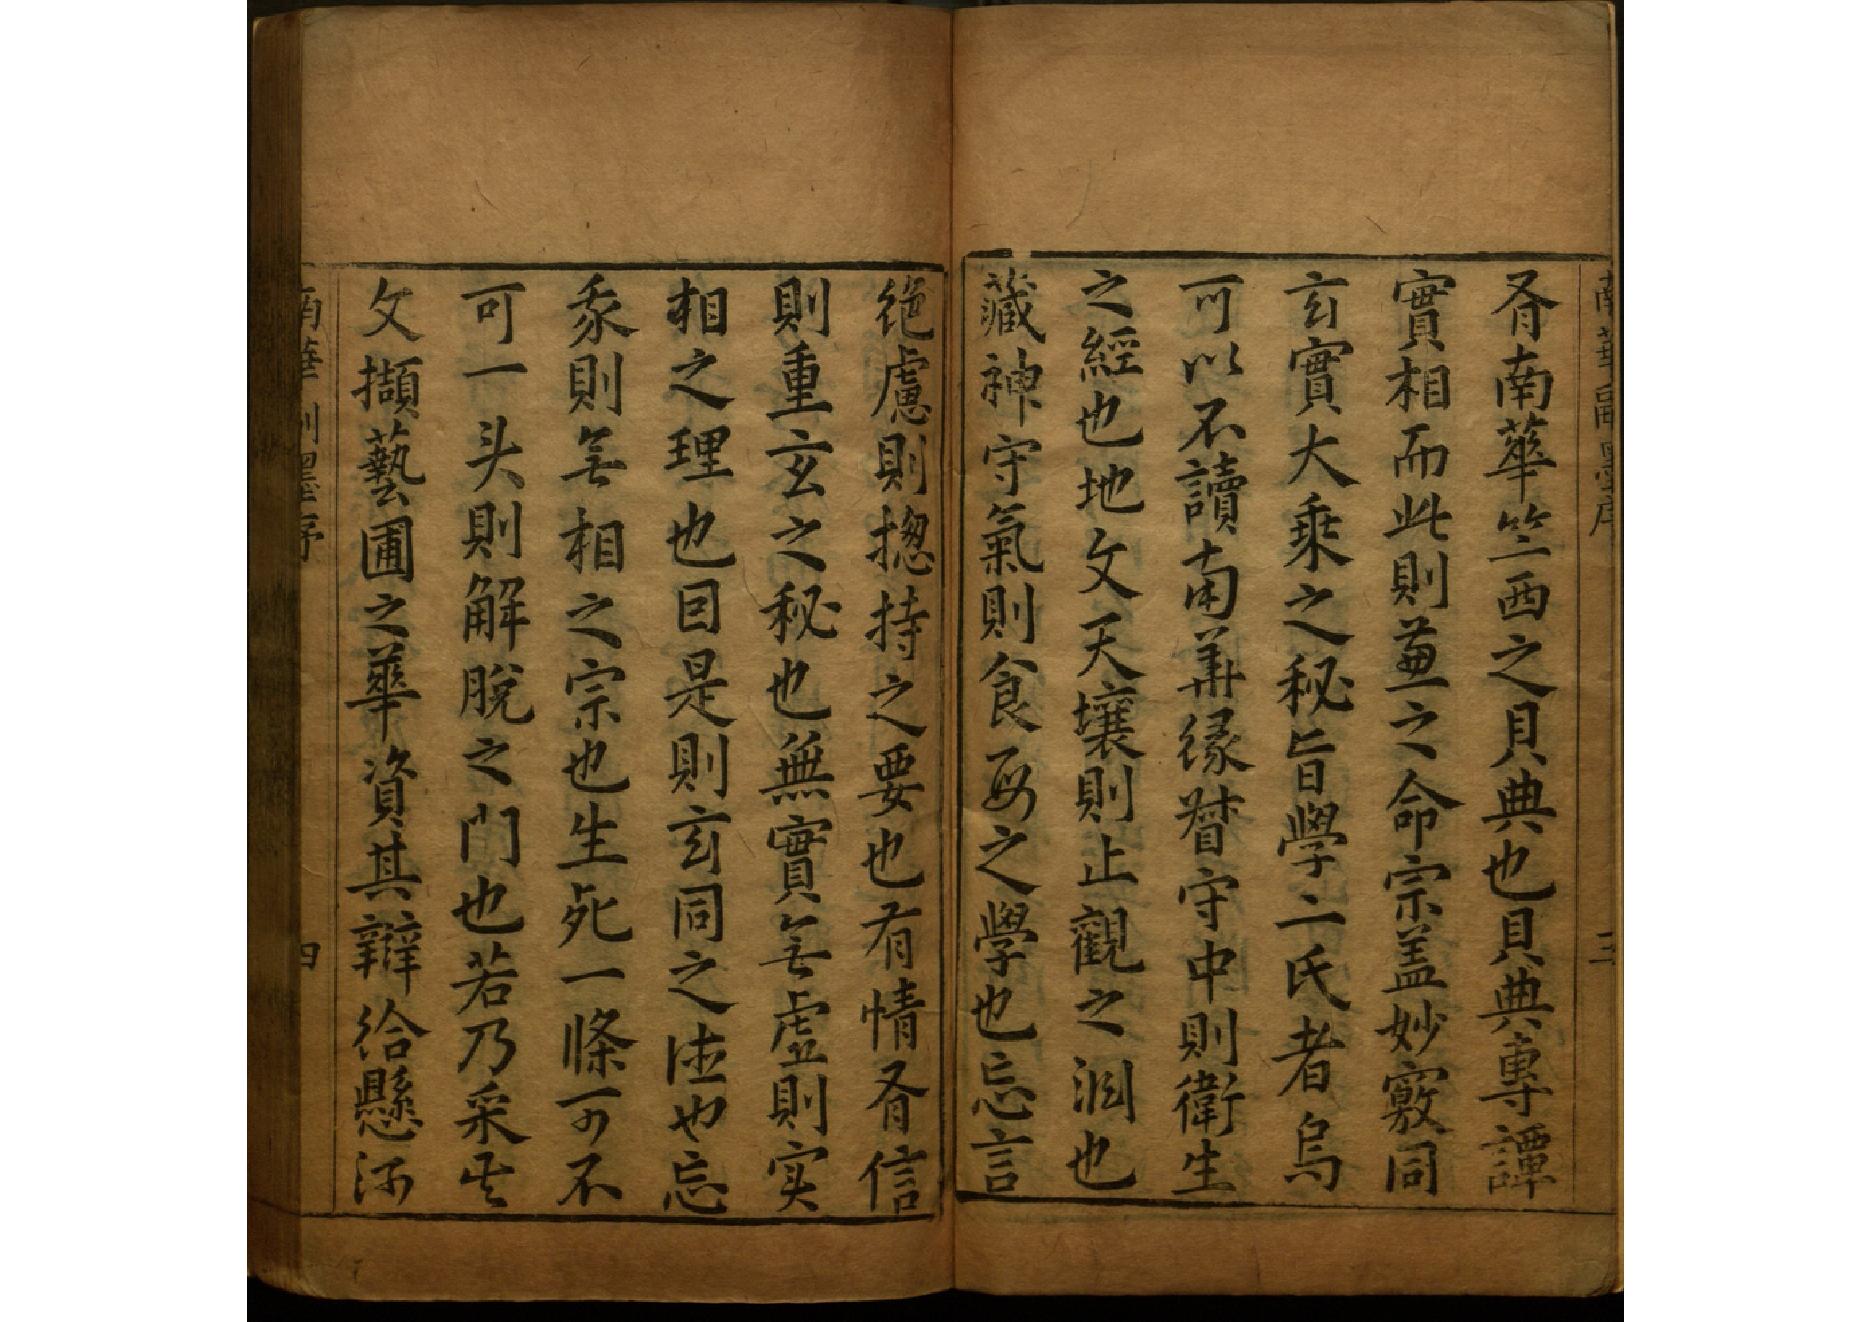 南華副墨序 三
有南華竺西之貝典也貝典專譚
實相而此則兼之命宗盖妙竅同
玄實大乘之秘旨學二氏者烏
可以不讀南華緣督守中則衛生
之經也地文天壤則止觀之淵也
藏神守氣則食母之學也忘言
絶慮則捴持之要也有情有信
則重玄之秘也無實无虛則实
相之理也因是則玄同之德也忘
我則无相之宗也生死一條可不
可一貫則解脫之門也若乃采其
文擷藝圃之華資其辯給懸河
南華副墨序 四